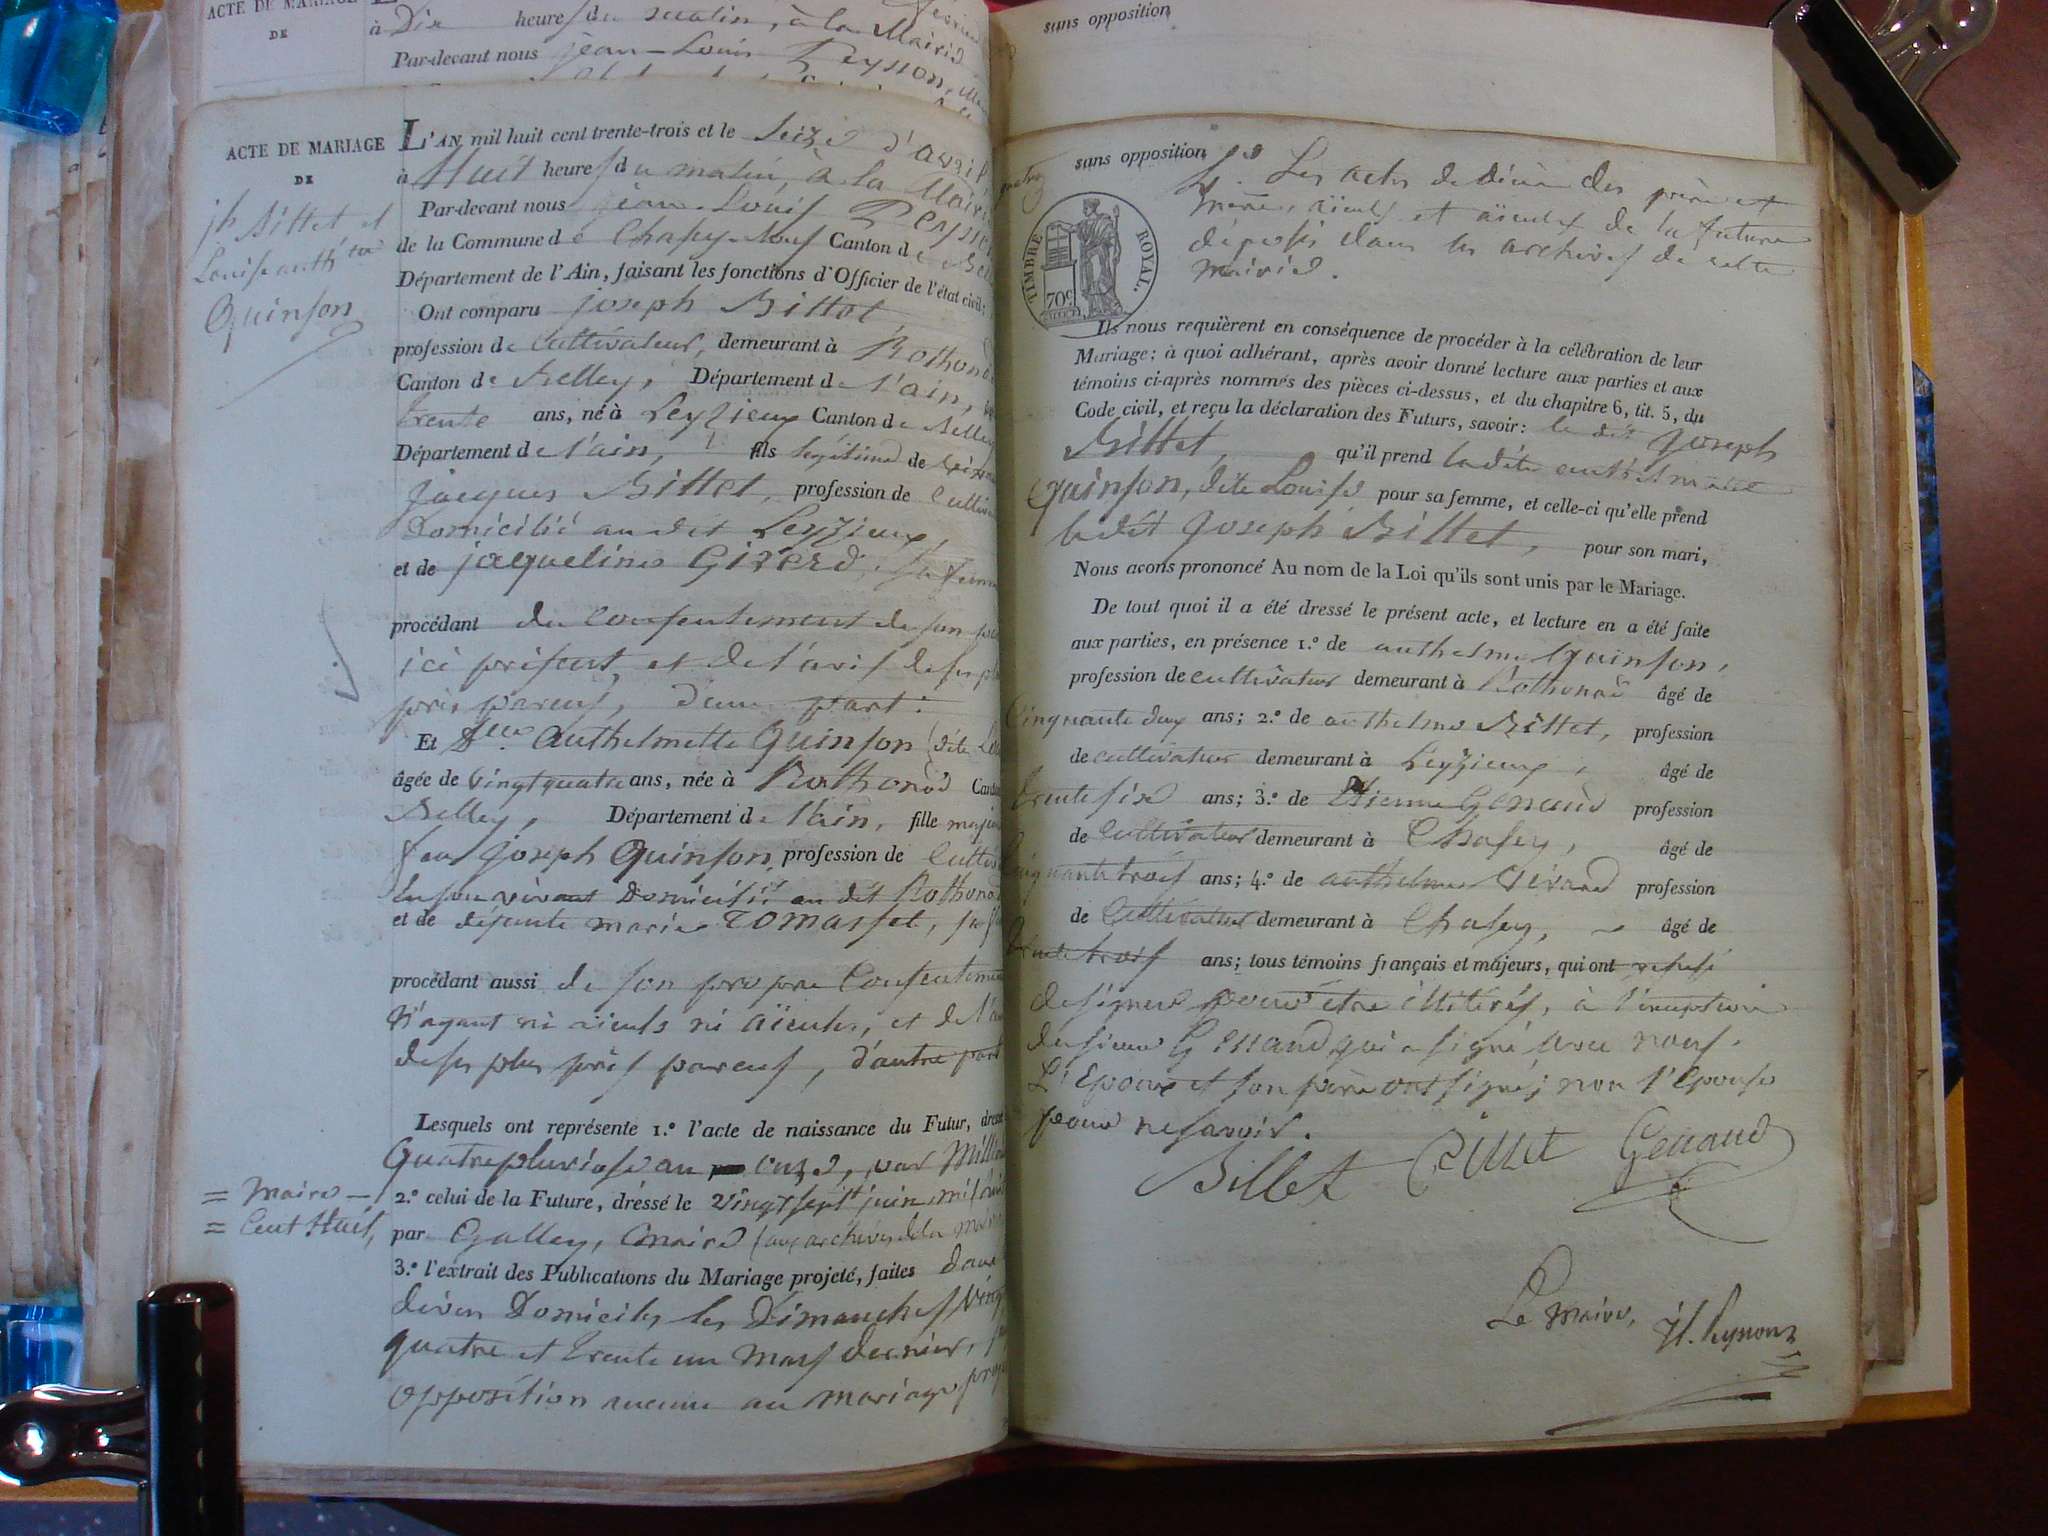 ACTE DE MARIAGE
DE
à Dix heures du matin, à la Mairie
Par-devant nous jean-Louis Peysson,
ACTE DE MARIAGE
DE
jh Billet et
Louise anth.tte
Quinson
L'AN mil huit cent trente-trois et le seize d'avril
à Huit heures du matin, à la Mairie
Par-devant nous jean-Louis Peysson
de la Commune de Chasey-Bons Canton de
Département de l'Ain, faisant les fonctions d'Officier de l'état civil:
Ont comparu joseph Billet
profession de Cultivateur, demeurant à Rothonod
Canton de Belley, Département de l'ain,
trente ans, né à Leyzieux Canton de Belley
Département de l'ain, fils légitime de
jacques Billet, profession de
Domicilié au dit Leyzieux,
et de jaqueline Girerd, sa femme
procédant du Consentement de son père
ici présent, et de l'avis de ses plus
près parens, d'une part:
Et D.lle Anthelmette Quinson (dite
âgée de Vingt quatre ans, née à Rothonod Canton
Belley, Département de l'ain, fille majeure
feu joseph Quinson, profession de
En son vivant Domicilié au dit Rothonod
et de défunte marie Tomasset,
procédant aussi de son propre Consentement
N'ayant ni aïeuls ni aïeules, et de l'avis
de ses plus près parens, d'autre part
Lesquels ont représenté 1.º l'acte de naissance du Futur, dressé
Quatre pluviose an onze, par
= Maire -
2.º celui de la Future, dressé le Vingt sept juin mil
= Cent Huit,
par Galley, Maire (aux archives de la mairie
3.º l'extrait des Publications du Mariage projeté, faites dans
divers Domiciles les Dimanches Vingt
quatre et trente un Mars dernier,
opposition aucune au mariage
sans opposition
sans opposition
4.º Les actes de décès des père et
mère, aïeuls et aïeules de la future
déposés dans les archives de cette
mairie.
TIMBRE ROYAL.
70c
Ils nous requièrent en conséquence de procéder à la célébration de leur
Mariage; à quoi adhérant, après avoir donné lecture aux parties et aux
témoins ci-après nommés des pièces ci-dessus, et du chapitre 6, tit. 5, du
Code civil, et reçu la déclaration des Futurs, savoir: le dit Joseph
Billet, qu'il prend ladite anthelmette
Quinson, dite Louise pour sa femme, et celle-ci qu'elle prend
ledit Joseph Billet, pour son mari,
Nous avons prononcé Au nom de la Loi qu'ils sont unis par le Mariage.
De tout quoi il a été dressé le présent acte, et lecture en a été faite
aux parties, en présence 1.º de anthelme Quinson,
profession de cultivateur demeurant à Rothonod âgé de
Cinquante deux ans; 2.º de anthelme Billet, profession
de cultivateur demeurant à Leyzieux, âgé de
trente six ans; 3.º de Etienne Genaud profession
de Cultivateur demeurant à Chasey, âgé de
Cinquante trois ans; 4.º de anthelme Girerd profession
de Cultivateur demeurant à Chasey, âgé de
trente trois ans; tous témoins français et majeurs, qui ont refusé
de signer pour être illitérés, à l'exception
du sieur Genaud qui a signé avec nous.
L'Epoux et son père ont signé; non l'Epouse
pour ne savoir.
Billet Billet Genaud
Le Maire, Jl. Peysson